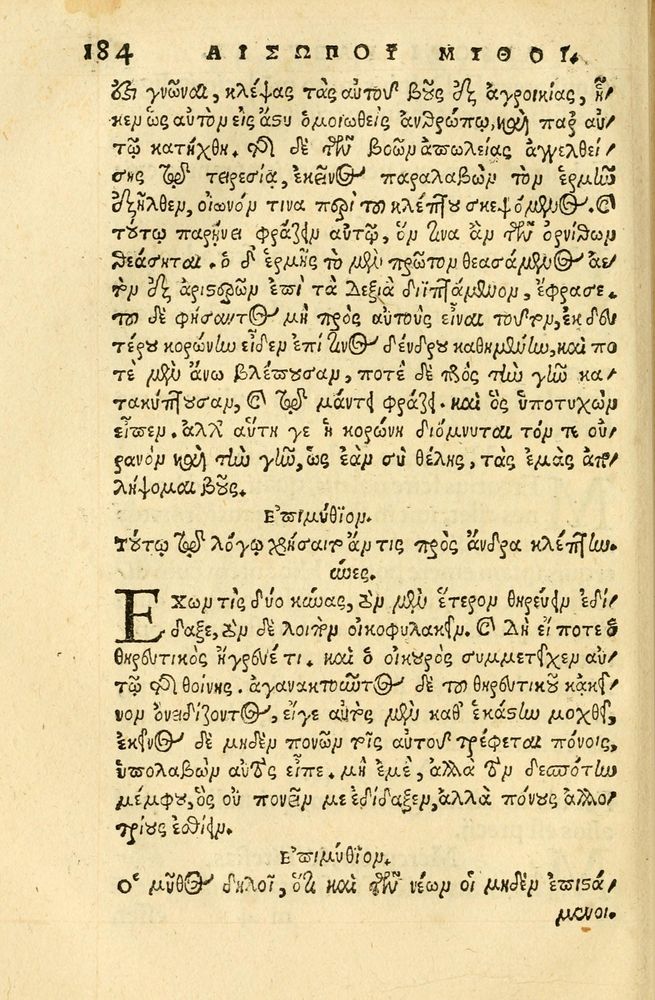 184 ΑΙΣΩΠΟΥ ΜΥΘΟΙ.
ἐςι γνῶναι, κλέψας τὰς αὐτοῦ βοῦς ἐξ ἀγροικίας, ἧ/
κεν ὡς αὐτὸν εἰς ἄςυ ὁμοιωθεὶς ἀνθρώπῳ, καὶ παρ' αὐ/
τῷ κατήχθη. τῆς δὲ τῶν βοῶν ἀπωλείας ἀγγελθεί/
σης τῷ τειρεσίᾳ, ἐκεῖνος παραλαβὼν τὸν ἑρμῆν
ἐξῆλθεν, οἰωνόν τινα περὶ τοῦ κλέπτου σκεψόμενος. καὶ
τούτῳ παρῄνει φράζειν αὐτῷ, ὅν τινα ἂν τῶν ὀρνίθων
θεάσηται. ὁ δ' ἑρμῆς τὸ μὲν πρῶτον θεασάμενος ἀε/
τὸν ἐξ ἀριςερῶν ἐπὶ τὰ δεξιὰ διϊπτάμενον, ἔφρασε.
τοῦ δὲ φήσαντος μὴ πρὸς αὐτοὺς εἶναι τοῦτον, ἐκ δευ/
τέρου κορώνην εἶδεν ἐπί τινος δένδρου καθημένην, καὶ πο
τὲ μὲν ἄνω βλέπουσαν, ποτὲ δὲ πρὸς τὴν γῆν κα/
τακύπτουσαν, καὶ τῷ μάντει φράζει. καὶ ὃς ὑποτυχὼν
εἶπεν. ἀλλ' αὕτη γε ἡ κορώνη διόμνυται τόν τε οὐ/
ρανὸν καὶ τὴν γῆν, ὡς ἐὰν σὺ θέλῃς, τὰς ἐμὰς ἀπο/
λήψομαι βοῦς.
Ἐπιμύθιον.
Τούτῳ τῷ λόγῳ χρήσαιτο ἄν τις πρὸς ἄνδρα κλέπτην.
κύνες.
Ἔχων τὶς δύο κύνας, τὸν μὲν ἕτερον θηρεύειν ἐδί/
δαξε, τὸν δὲ λοιπὸν οἰκοφυλακεῖν. καὶ δὴ εἴ ποτε ὁ
θηρευτικὸς ἤγρευέ τι. καὶ ὁ οἰκουρὸς συμμετεῖχεν αὐ/
τῷ τῆς θοίνης. ἀγανακτοῦντος δὲ τοῦ θηρευτικοῦ κἀκεῖ/
νον ὀνειδίζοντος, εἴγε αὐτὸς μὲν καθ' ἑκάςην μοχθεῖ,
ἐκεῖνος δὲ μηδὲν πονῶν τοῖς αὐτοῦ τρέφεται πόνοις,
ὑπολαβὼν αὐτὸς εἶπε. μὴ ἐμὲ, ἀλλὰ τὸν δεσπότην
μέμφου, ὃς οὐ πονεῖν με ἐδίδαξεν, ἀλλὰ πόνους ἀλλο/
τρίους ἐσθίειν.
Ἐπιμύθιον.
Ὁ μῦθος δηλοῖ, ὅτι καὶ τῶν νέων οἱ μηδὲν ἐπιςά/
μενοι.